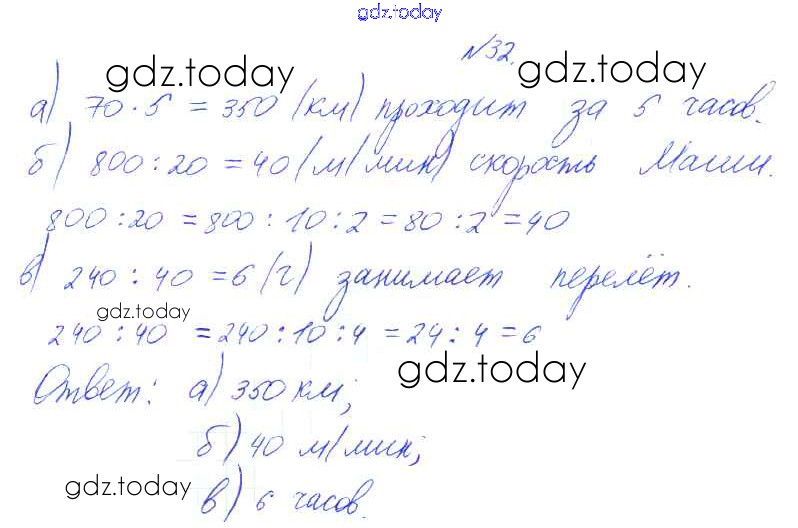 gdz.today
№32.
gdz.today gdz.today
а) 70 · 5 = 350 (км) проходит за 5 часов.
б) 800 : 20 = 40 (м/мин) скорость Маши.
800 : 20 = 800 : 10 : 2 = 80 : 2 = 40
в) 240 : 40 = 6 (ч) занимает перелёт.
gdz.today
240 : 40 = 240 : 10 : 4 = 24 : 4 = 6
gdz.today
Ответ: а) 350 км;
б) 40 м/мин;
gdz.today
в) 6 часов.